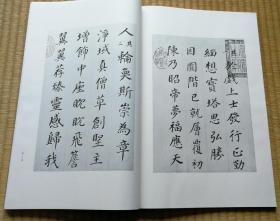 其一於戲上士發行正勤
緬想寶塔思弘勝
因圓階已就層覆初
陳乃昭帝夢福應天
人其二輪奐斯崇為章
淨域真僧草創聖主
增飾中座眈眈飛簷
翼翼荐臻靈感歸我